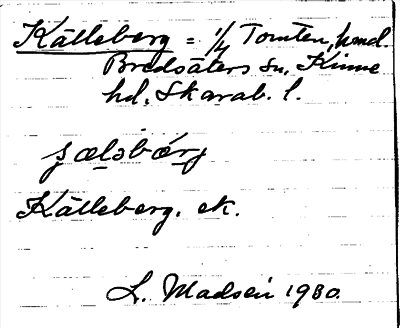 Källeberg = 1/4 Tomten, hmd.
Bredsäters sn, Kinne
hd, Skarab. l.
Källeberg. ek.
L. Madsén 1930.